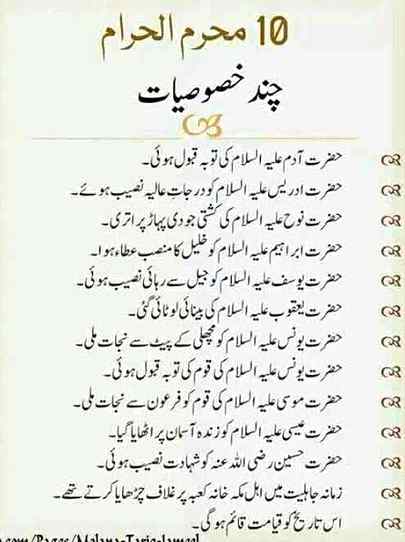 10 محرم الحرام
چند خصوصیات
حضرت آدم علیہ السلام کی توبہ قبول ہوئی۔
حضرت ادریس علیہ السلام کو درجات عالیہ نصیب ہوئے۔
حضرت نوح علیہ السلام کی کشتی جودی پہاڑ پر اتری۔
حضرت ابراہیم علیہ السلام کو خلیل کا منصب عطاء ہوا۔
حضرت یوسف علیہ السلام کو جیل سے رہائی نصیب ہوئی۔
حضرت یعقوب علیہ السلام کی بینائی لوٹائی گئی۔
حضرت یونس علیہ السلام کو مچھلی کے پیٹ سے نجات ملی۔
حضرت یونس علیہ السلام کی قوم کی توبہ قبول ہوئی۔
حضرت موسی علیہ السلام کی قوم کو فرعون سے نجات ملی۔
حضرت عیسی علیہ السلام کو زندہ آسمان پر اٹھایا گیا۔
حضرت حسین رضی اللہ عنہ کو شہادت نصیب ہوئی۔
زمانہ جاہلیت میں اہل مکہ خانہ کعبہ پر غلاف چڑھایا کرتے تھے۔
اس تاریخ کو قیامت قائم ہوگی۔
.com/Pages/Molana-Tariq-Jameel